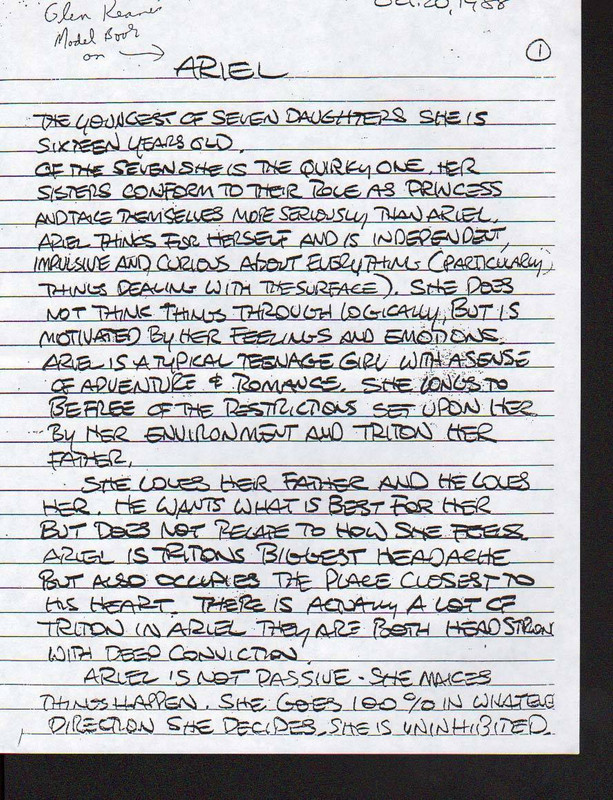 Glen Keane's
Oct. 20, 1988
Model Book
on →
1
ARIEL
THE YOUNGEST OF SEVEN DAUGHTERS SHE IS
SIXTEEN YEARS OLD.
OF THE SEVEN SHE IS THE QUIRKY ONE. HER
SISTERS CONFORM TO THEIR ROLE AS PRINCESS
AND TAKE THEMSELVES MORE SERIOUSLY THAN ARIEL.
ARIEL THINGS FOR HERSELF AND IS INDEPENDENT,
IMPULSIVE AND CURIOUS ABOUT EVERYTHING (PARTICULARLY
THINGS DEALING WITH THE SURFACE). SHE DOES
NOT THINK THINGS THROUGH LOGICALLY, BUT IS
MOTIVATED BY HER FEELINGS AND EMOTIONS.
ARIEL IS A TYPICAL TEENAGE GIRL WITH A SENSE
OF ADVENTURE & ROMANCE. SHE LONGS TO
BE FREE OF THE RESTRICTIONS SET UPON HER
BY HER ENVIRONMENT AND TRITON HER
FATHER.
SHE LOVES HER FATHER AND HE LOVES
HER. HE WANTS WHAT IS BEST FOR HER
BUT DOES NOT RELATE TO HOW SHE FEELS.
ARIEL IS TRITONS BIGGEST HEADACHE
BUT ALSO OCCUPIES THE PLACE CLOSEST TO
HIS HEART. THERE IS ACTUALLY A LOT OF
TRITON IN ARIEL. THEY ARE BOTH HEADSTRON
WITH DEEP CONVICTION.
ARIEL IS NOT PASSIVE - SHE MAKES
THINGS HAPPEN. SHE GOES 100% IN WHATEVE
DIRECTION SHE DECIDES. SHE IS UNINHIBITED.